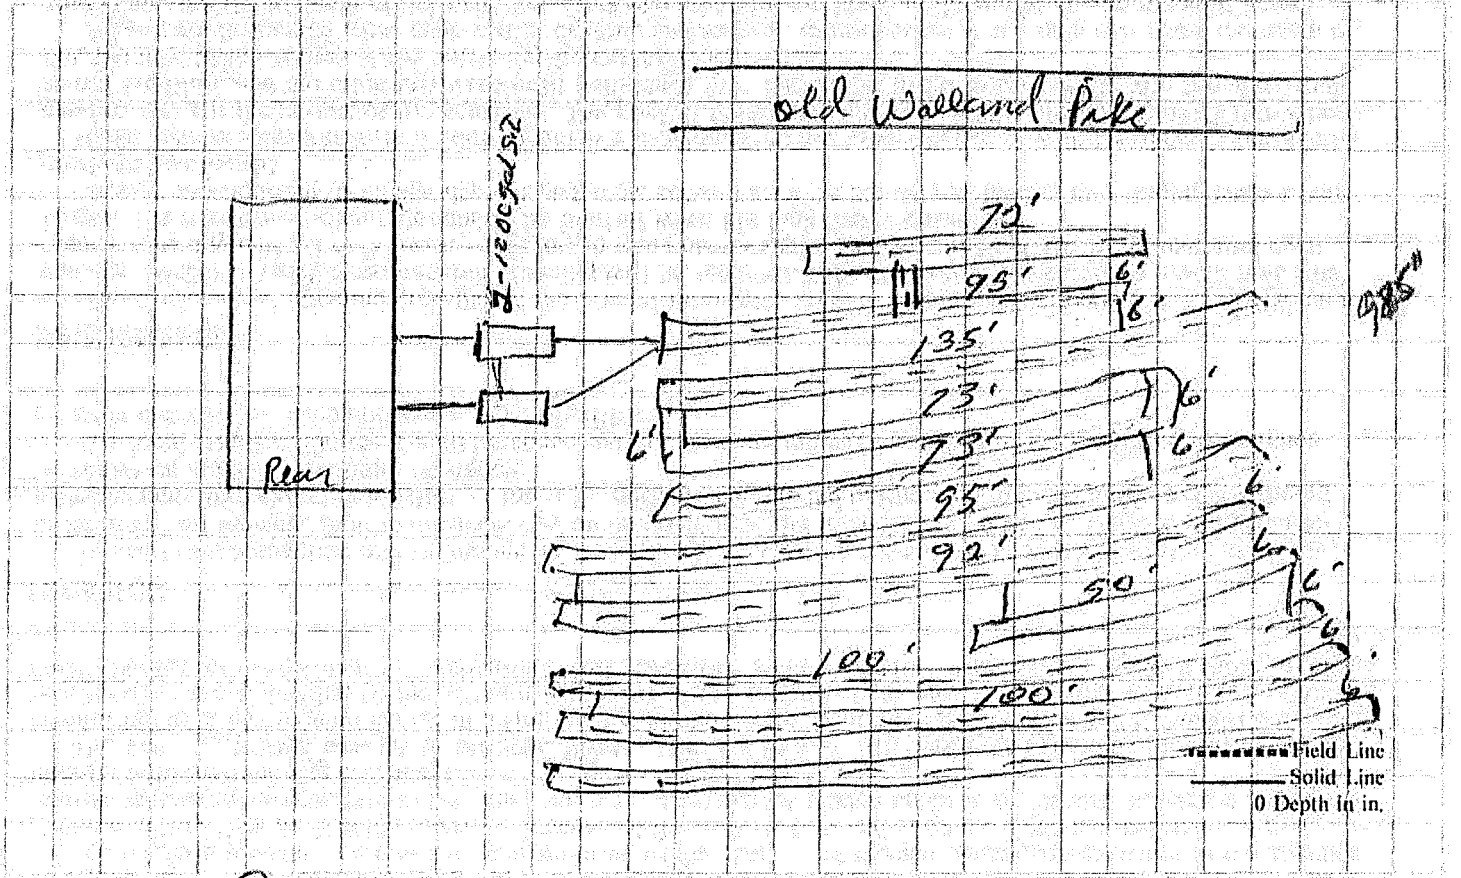 old Walland Pike
2-1200 gal S.T.
72'
95'
6'
6'
135'
985"
73'
6'
6'
73'
6
Rear
95'
6'
92'
6
50'
6'
6
100'
6'
100'
Field Line
Solid Line
0 Depth in in.